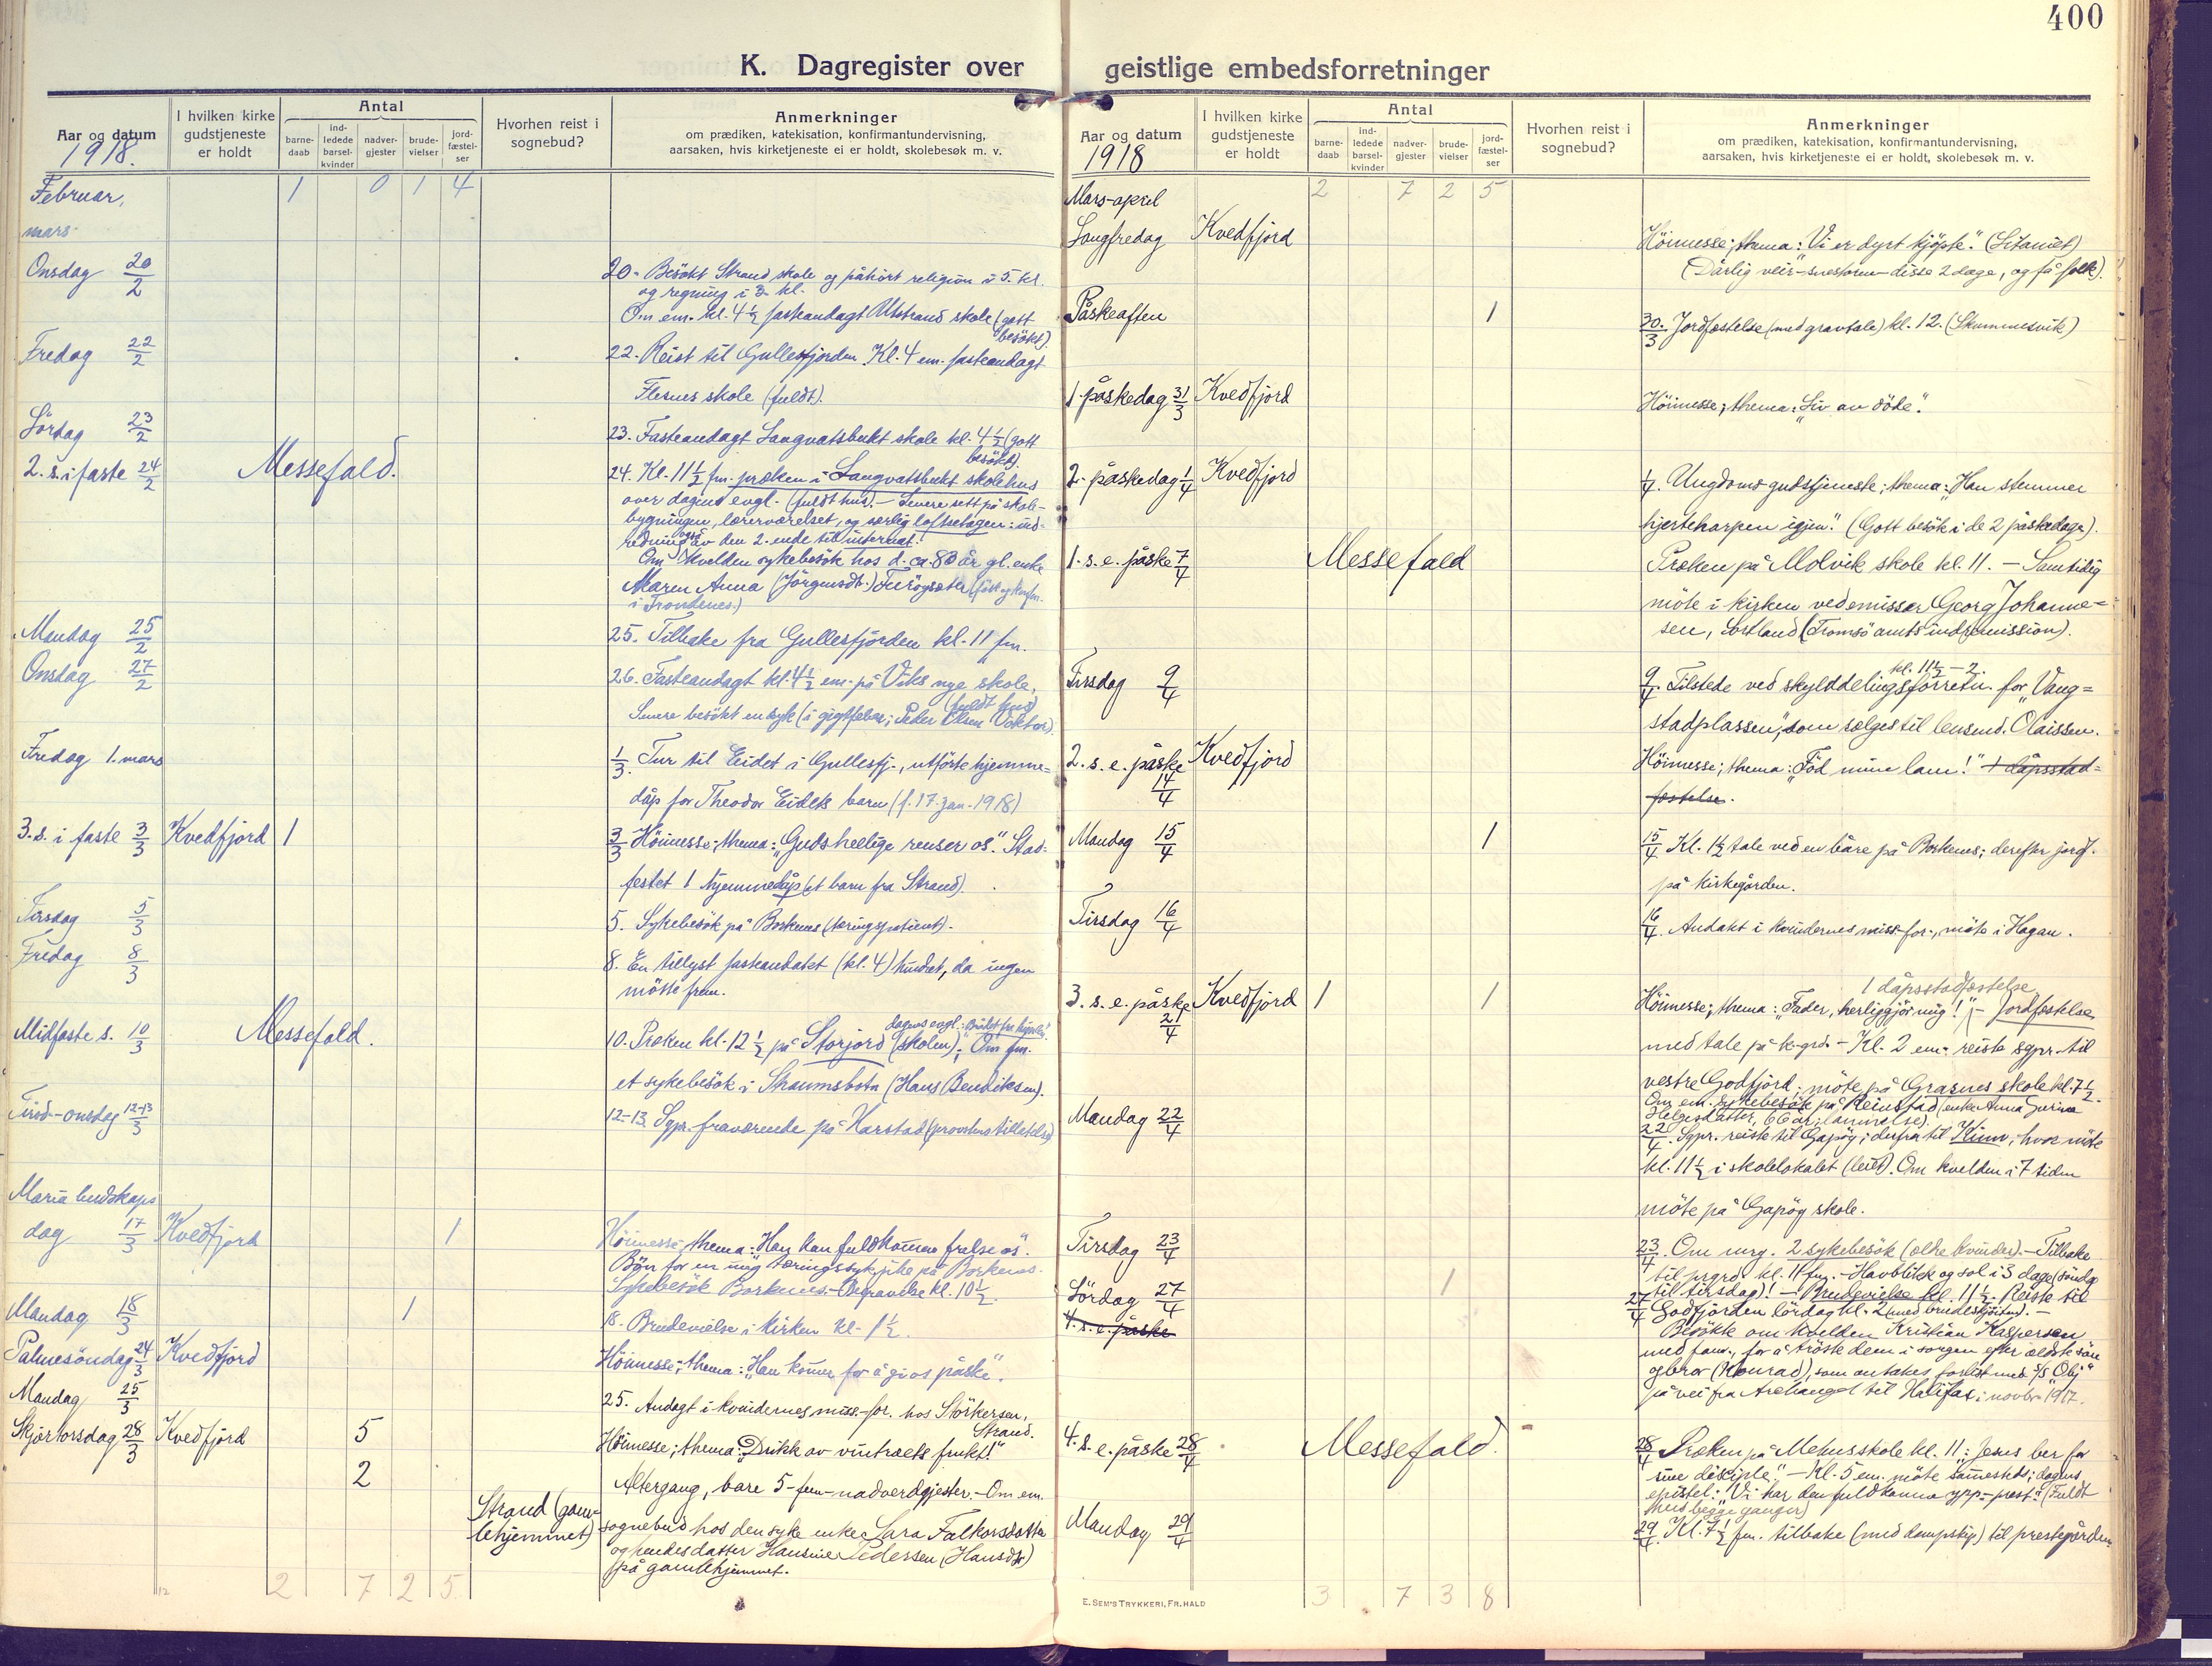 400
K. Dagregister over geistlige embedsforretninger
Aar og datum
1918.
I hvilken kirke gudstjeneste er holdt
Antal
barnedaab
indledede barselkvinder
nadvergjester
brudevielser
jordfæstelser
Hvorhen reist i sognebud?
Anmerkninger
om prædiken, katekisation, konfirmantundervisning,
aarsaken, hvis kirketjeneste ei er holdt, skolebesøk m. v.
Februar, 1 0 1 4
mars
Onsdag 20/2 20. Besökt Strand skole og påhört religion i 5. kl.
og regning i 3. kl.
Om em. kl. 4½ fasteandagt Utstrand skole (gott
besökt).
Fredag 22/2 22. Reist til Gullesfjorden. Kl. 4 em. fasteandagt
Flesnes skole (fuldt).
Lördag 23/2 23. Fasteandagt Langvatsbukt skole kl. 4½ (gott
besökt).
2. s. i faste 24/2 Messefald. 24. Kl. 11½ fm. præken i Langvatsbukt skolehus
over dagens evgl. (fuldt hus). – Senere sett på skole-
bygningen, lærerværelset, og særlig loftsetagen: ind-
redning av den 2. ende til internat!
Om kvelden sykebesök hos d. ca. 83 år gl. enke
Maren Anna (Jörgensdt.)
i Trondenes.)
Mandag 25/2 25. Tilbake fra Gullesfjorden kl. 11 fm.
Onsdag 27/2 26. Fasteandagt kl. 4½ em. på Viks nye skole,
(fuldt hus)
Senere besökt en syk (i gigtfeber; Peder Olsen Voktor).
Fredag 1. mars 1/3. Tur til Eidet i Gullesfj., utförte hjemme-
dåp for Theodor Eidets barn (f. 17. jan. 1918)
3. s. i faste 3/3 Kvedfjord 1 3/3 Höimesse; thema: "Guds hellige renser os". Stad-
festet 1 hjemmedåp (et barn fra Strand).
Tirsdag 5/3 5. Sykebesök på Borkenes (tæringspatient).
Fredag 8/3 8. En tillyst fasteandakt (kl. 4) hindret, da ingen
mötte frem.
Midfaste s. 10/3 Messefald. 10. Præken kl. 12½ på Storjord (skolen); dagens evgl. Om fm.
et sykebesök i Straumsbotn (Hans Bendiksen).
Tirsd.-onsdag 12-13/3 12-13. Sgpr. fraværende på Harstad (provstens tillatelse)
Maria budskaps
dag 17/3 Kvedfjord 1 Höimesse; thema: "Han kan fuldkommen frelse os".
Bön for en ung tæringssyk pike på Borkenes.
Sykebesök Borkenes. kl. 10½.
Mandag 18/3 1 18. Brudevielse i kirken kl. 1½.
Palmesöndag 24/3 Kvedfjord Höimesse; thema: "Han kommer for å gi os påske".
Mandag 25/3 25. Andagt i kvindernes miss.-for. hos Störkersen,
Strand.
Skjærtorsdag 28/3 Kvedfjord 5 Höimesse; thema: "Drikk av vintræets frukt!"
2 Altergang, bare 5 – fem – nadverdgjester. – Om em.
Strand (gam- sognebud hos den syke enke Lara Falkorsdatter
lehjemmet) og hendes datter Hansine Pedersen (Hansdtr)
på gamlehjemmet.
12 2 7 2 5
Aar og datum
1918
I hvilken kirke gudstjeneste er holdt
Antal
barnedaab
indledede barselkvinder
nadvergjester
brudevielser
jordfæstelser
Hvorhen reist i sognebud?
Anmerkninger
om prædiken, katekisation, konfirmantundervisning,
aarsaken, hvis kirketjeneste ei er holdt, skolebesøk m. v.
Mars-april 2 7 2 5
Langfredag Kvedfjord Höimesse; thema: "Vi er dyrt kjöpte". (Litaniet)
(Dårlig veir – snestorm – disse 2 dage, og få folk).
Påskeaften 1 30/3. Jordfæstelse (med gravtale) kl. 12. (Skummesvik)
1. påskedag 31/3 Kvedfjord Höimesse; thema: "Liv av döde".
2. påskedag 1/4 Kvedfjord 1/4. Ungdomsgudstjeneste; thema: "Han stemmer
hjerteharpen igjen". (Gott besök i de 2 påskedage).
1. s. e. påske 7/4 Messefald Præken på Molvik skole kl. 11. – Samtidig
möte i kirken ved emissær Georg Johanne-
sen, Sortland (Tromsö amts indremission).
Tirsdag 9/4 9/4. Tilstede ved skylddelingsforretn. kl. 11½ – 2. for "Vang-
stadplassen", som sælges til lensmd. Olaissen.
2. s. e. påske 14/4 Kvedfjord Höimesse; thema: "Fød mine lam!" 1 dåpsstad-
fæstelse.
Mandag 15/4 1 15/4 Kl. 1½ tale ved en båre på Borkenes; derefter jordf.
på kirkegården.
Tirsdag 16/4 16/4. Andakt i kvindernes miss.-for., möte i Hagan.
3. s. e. påske 21/4 Kvedfjord 1 1 1 dåpsstadfæstelse
Höimesse; thema: "Fader, herliggjör mig!" – Jordfæstelse
med tale på k.-grd. – Kl. 2 em. reiste sgpr. til
vestre Godfjord; möte på Grasnes skole kl. 7½.
Om em. sykebesök på Reinstad (enke Anna
Helgesdatter, 66 år; lammelse).
Mandag 22/4 22/4. Sgpr. reiste til Gapöy; derfra til, hvor möte
kl. 11½ i skolelokalet (leiet). Om kvelden i 7 tiden
möte på Gapöy skole.
Tirsdag 23/4 23/4. Om mrg. 2 sykebesök (ældre kvinder). – Tilbake
til prgrd. kl. 11 fm. – Havblikk og sol i 3 dage (söndag
til tirsdag)! – Brudevielse kl. 11½. Reiste til
Lördag 27/4 1 27/4 Godfjorden lördag kl. 2 (med brudeskjöiten). –
4. s. e. påske Besökte om kvelden Kristian Kaspersen
med fam., for å tröste dem i sorgen efter ældste sön
og bror (Konrad), som antakes forlist med S/S "Obj"
på vei fra Archangel til Halifax i novbr. 1917.
4. s. e. påske 28/4 Messefald. 28/4 Præken på Mehus skole kl. 11: "Jesus ber for
sine disciple". – Kl. 5 em. möte sammesteds; dagens
epistel: "Vi har den fuldkomne ypp.-prest". (Fuldt
hus begge ganger)
Mandag 29/4 29/4. Kl. 7½ fm. tilbake (med dampskip) til prestegården
E. SEM'S TRYKKERI, FR.HALD
3 7 3 8